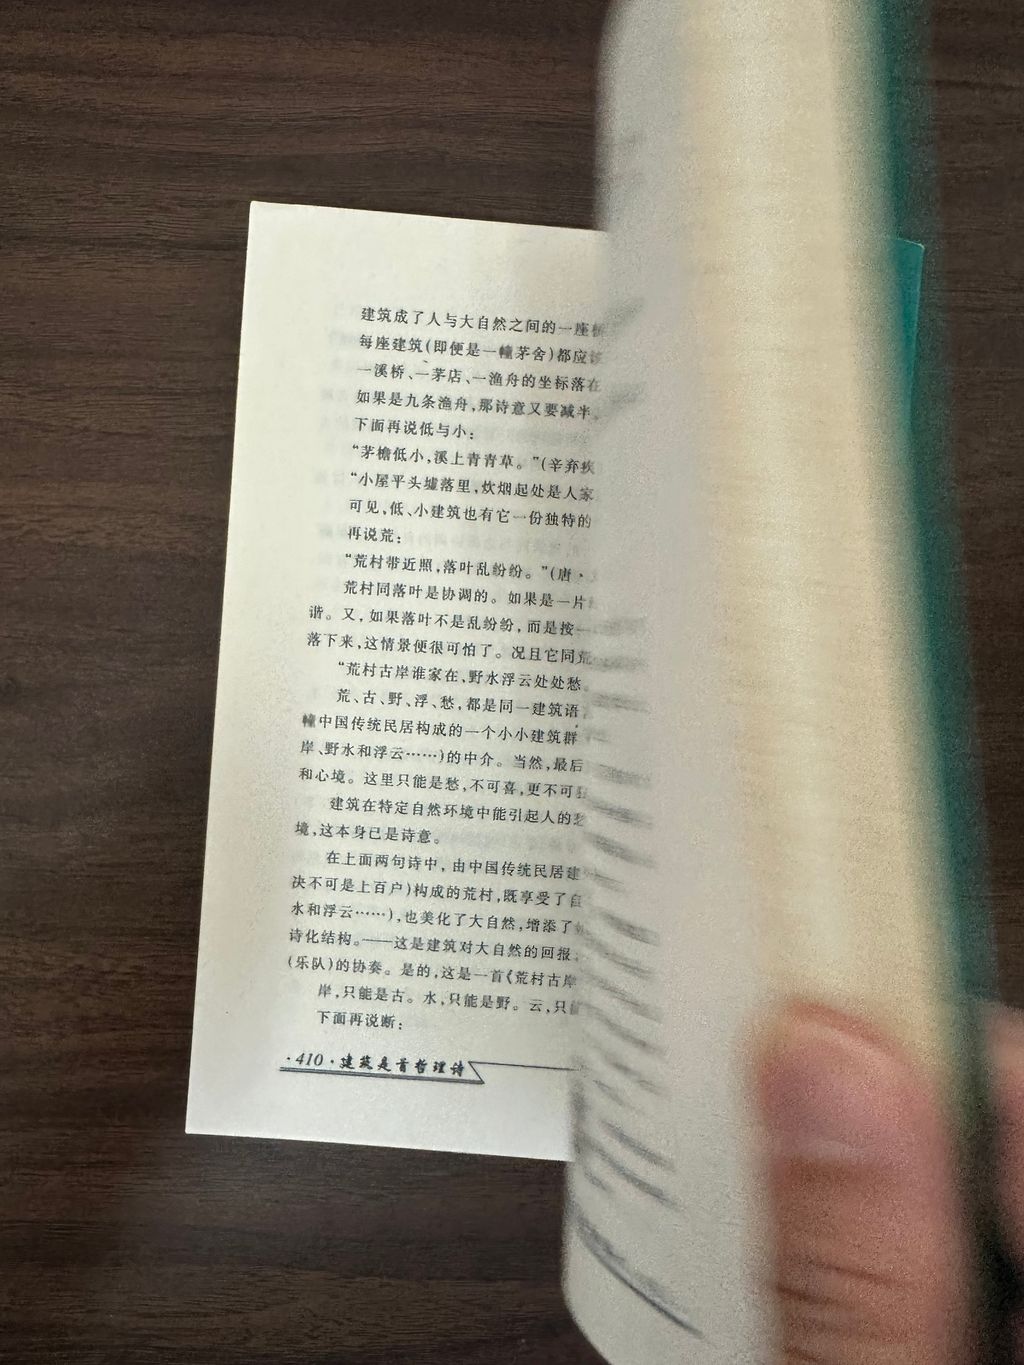 建筑成了人与大自然之间的一座桥
每座建筑(即便是一幢茅舍)都应该
一溪桥、一茅店、一渔舟的坐标落在
如果是九条渔舟,那诗意又要减半。
下面再说低与小:
“茅檐低小,溪上青青草。”(辛弃疾
“小屋平头墟落里,炊烟起处是人家
可见,低、小建筑也有它一份独特的
再说荒:
“荒村带近照,落叶乱纷纷。”(唐·
荒村同落叶是协调的。如果是一片
谐。又,如果落叶不是乱纷纷,而是按一
落下来,这情景便很可怕了。况且它同荒
“荒村古岸谁家在,野水浮云处处愁。
荒、古、野、浮、愁,都是同一建筑语
幢中国传统民居构成的一个小小建筑群
岸、野水和浮云……)的中介。当然,最后
和心境。这里只能是愁,不可喜,更不可狂
建筑在特定自然环境中能引起人的愁
境,这本身已是诗意。
在上面两句诗中,由中国传统民居建
决不可是上百户)构成的荒村,既享受了自
水和浮云……),也美化了大自然,增添了
诗化结构。——这是建筑对大自然的回报。
(乐队)的协奏。是的,这是一首《荒村古岸
岸,只能是古。水,只能是野。云,只能
下面再说断:
·410·建筑是首哲理诗